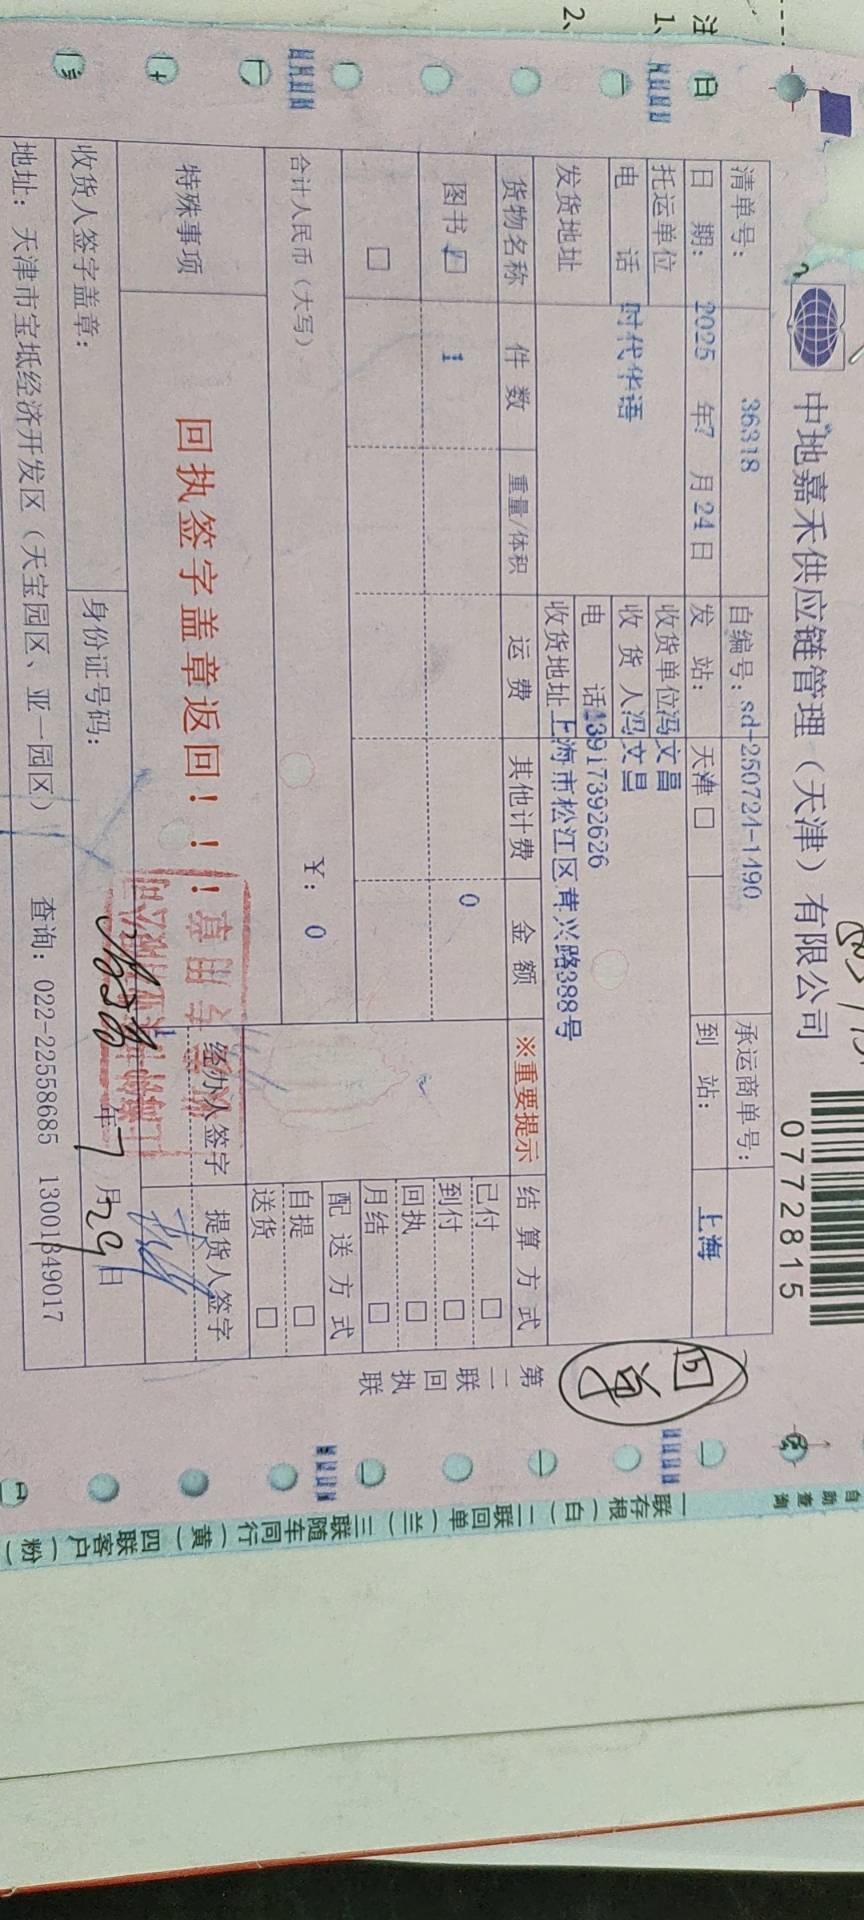 注
1、
2、
中地嘉禾供应链管理（天津）有限公司
0772815
清单号： 36318 自编号：sd-250724-1490 承运商单号：
日 期： 2025 年7 月24日 发 站： 天津□ 到 站： 上海
托运单位 收货单位冯文昌
电 话 时代华语 收 货 人冯文昌
电 话13917392626
发货地址 收货地址上海市松江区茸兴路388号
货物名称 件 数 重量/体积 运 费 其他计费 金 额 ※重要提示 结 算 方 式
图书 □ 1 0
已付 □
到付 □
回执 □
月结 □
□
合计人民币（大写） ￥：0
配 送 方 式
自提 □
送货 □
特殊事项 回执签字盖章返回！！！
经办人签字 提货人签字
1
收货人签字盖章： 身份证号码： 年7月29日
地址：天津市宝坻经济开发区（天宝园区、亚一园区） 查询：022-22558685 13001349017
第二联回执联
回单
自助查询
一联存根（白）二联回单（兰）三联随车同行（黄）四联客户（粉）